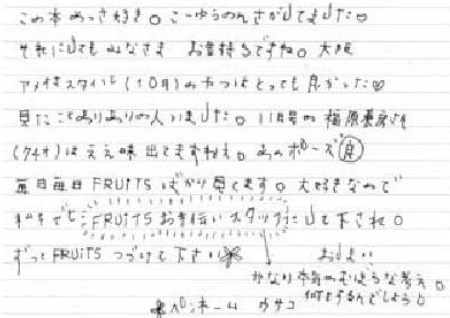 この本めっさ好き。こーゆうのんさがしてました♡
それにしても みなさま お金持ちですね。大阪
アメ村スタイル(10月)のやつはとっても良かった♡
見たことありありの人いました。11月号の福原
(タイオ)はええ味出てますねぇ。あのポーズ
毎日毎日FRUiTSばかり見てます。大好きなので
FRUiTSお手伝いスタッフにして下され。
ずっとFRUiTSつづけて下さい おしまい
かなり本気 な考え。
何をするんでしょう。
ペンネーム ウサコ